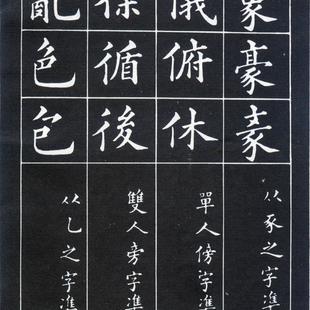 豪
从豕之字準
俯休
單人傍字準
循後
雙人旁字準
亂色包
从乙之字準